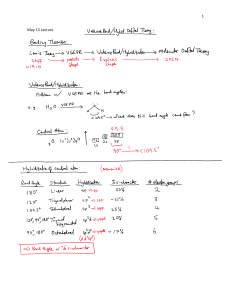 1
May 13 Lecture
Valence Bond/Hybrid Orbital Theory:
Bonding Theories:
Lewis Theory → VSEPR → Valence Bond/Hybridization → Molecular Orbital Theory
predicts shape
Explains shape
2024
Valence Bond/Hybridization:
Problem w/ VSEPR are the bond angles:
e.g. H₂O VSEPR
<109.5° → where does this bond angle come from?
Central Atom:
₈O 1s² 2s² 2p⁴
2s 2p
90° <109.5°
Hybridization of central atom: (memorize)
Bond Angle Structure Hybridization % s-character # electron groups
180° Linear sp 50% 2
120° Trigonal planar sp² ~33% 3
109.5° Tetrahedral sp³ 25% 4
120°, 90°, 180° Trigonal bipyramidal sp³d 20% 5
90°, 180° Octahedral sp³d² ~17% 6
(d²sp³)
⇒ Bond Angle ∝ % s-character